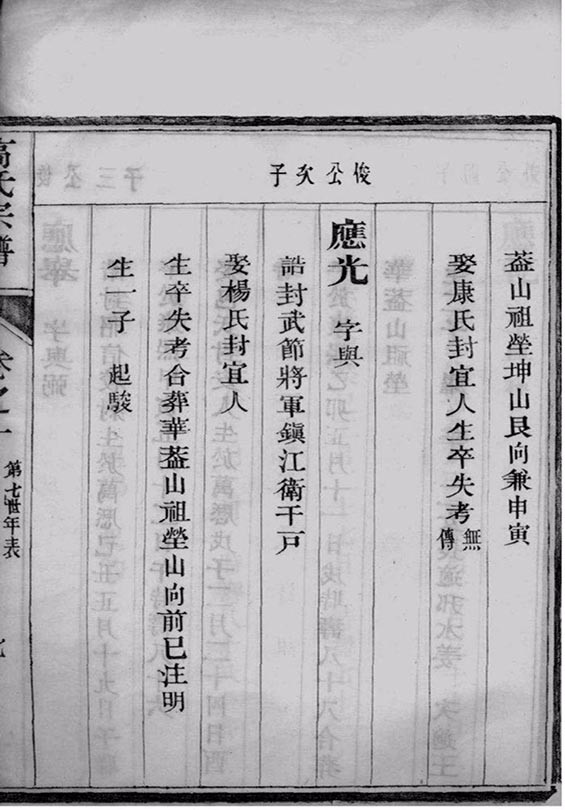 葢山祖塋坤山艮向兼申寅
娶康氏封宜人生卒失考無傳
俊公次子
應光 字與
誥封武節將軍鎮江衛千戶
娶楊氏封宜人
生卒失考合葬華葢山祖塋山向前已注明
生一子 起駿
高氏宗譜
卷之
第七世年表